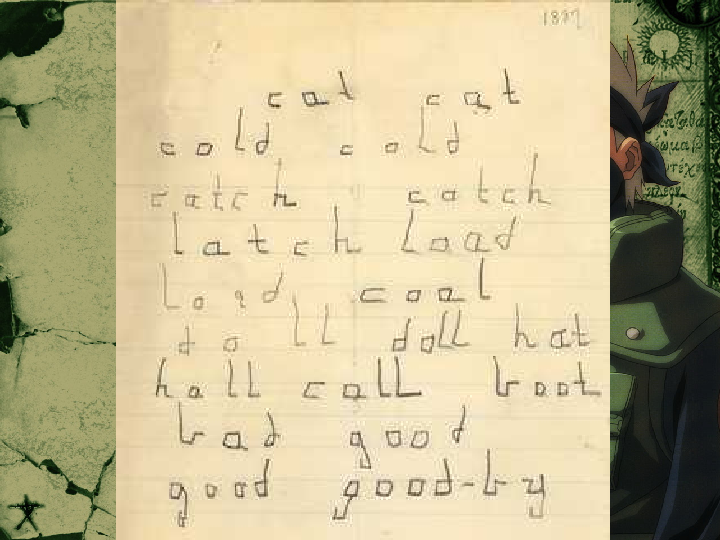 cat cat
cold cold
catch catch
latch load
load coal
doll doll hat
hall call boot
bad good
good good-by